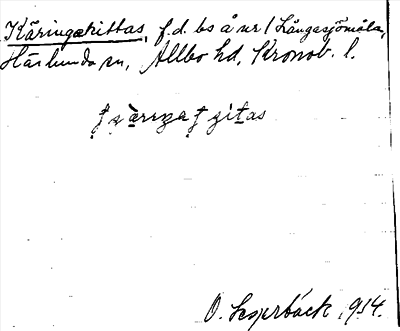 Käringakittas, f.d. bs å nr 1 Långasjömåla,
Härlunda sn, Allbo hd, Kronob. l.
O. Lagerbäck 1914.